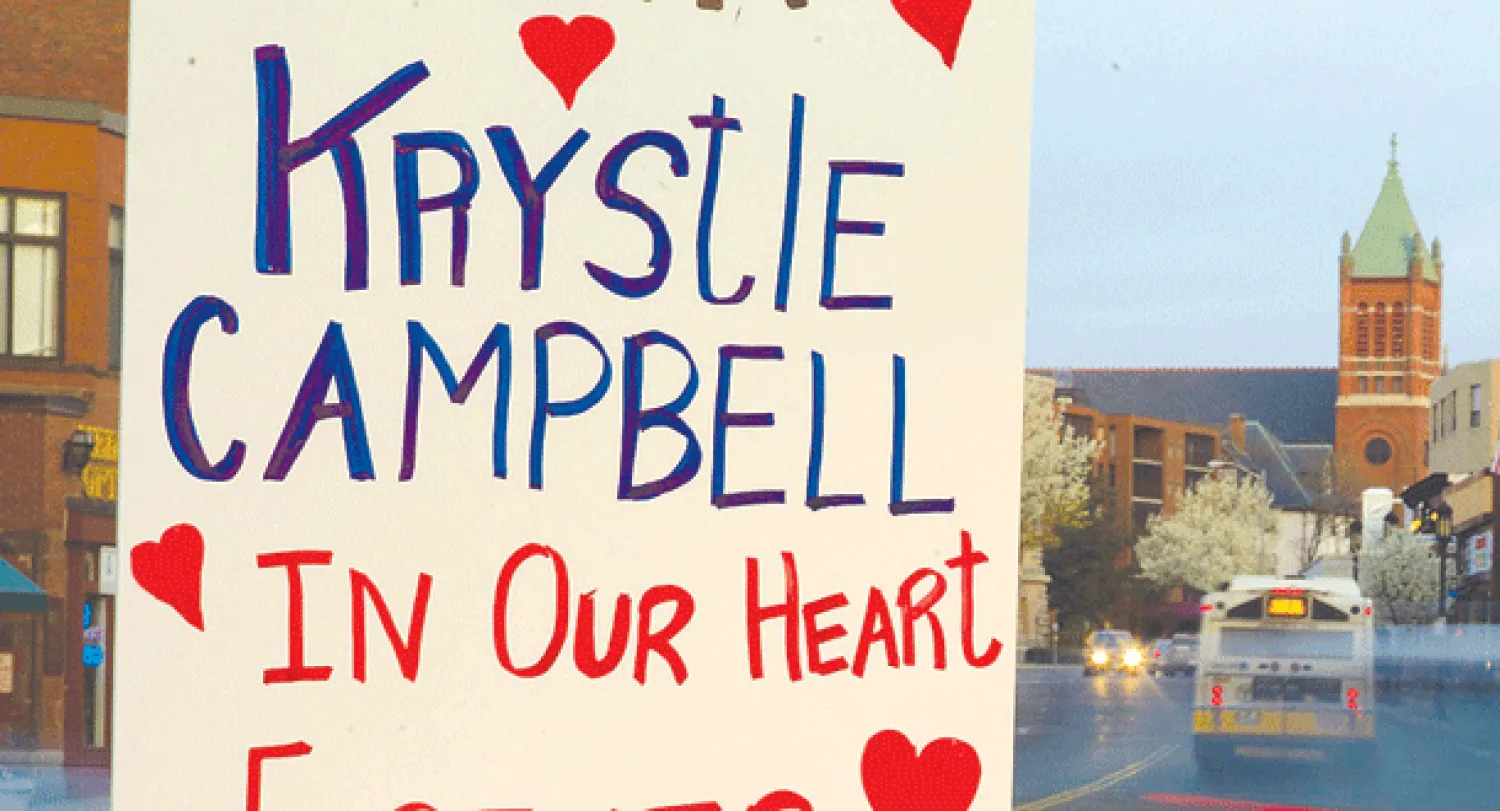 KRYStlE
CAMPBELL
IN OUR HEARt